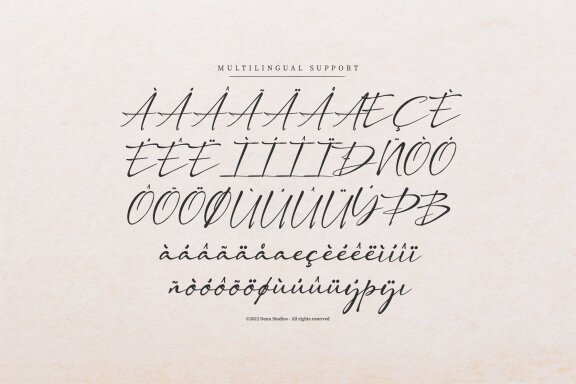 MULTILINGUAL SUPPORT
ÀÁÂÃÄÅÆÇÈ
ÉÊË ÌÍÎÏÐÑÒÓ
ÔÕÖØÙÚÛÜÝÞß
àáâãäåæçèéêëìíîï
ñòóôõöøùúûüýþÿı
©2022 Denu Studios - All rights reserved